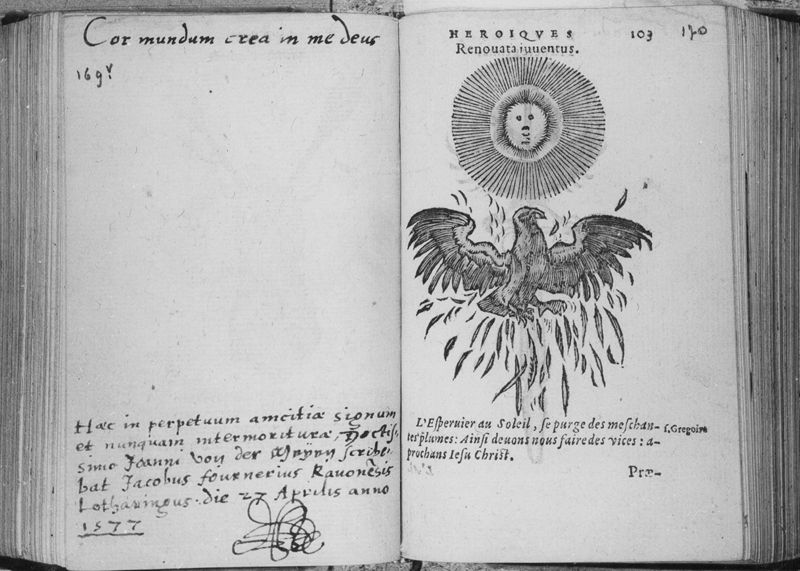 Cor mundum crea in me deus
169v
Hæc in perpetuum amicitiæ signum
et nunquam intermorituræ, Doctis-
simo Joanni von der scribe-
bat Jacobus fournerius Ravonēsis
Lotharingus. die 27 Aprilis anno
1577
HEROIQVES 103 170
Renouata iuuentus.
L'Esperuier au Soleil, se purge des meschan- S. Gregoire
tes plumes: Ainsi deuons nous faire des vices: a-
prochans Iesu Christ.
Præ-